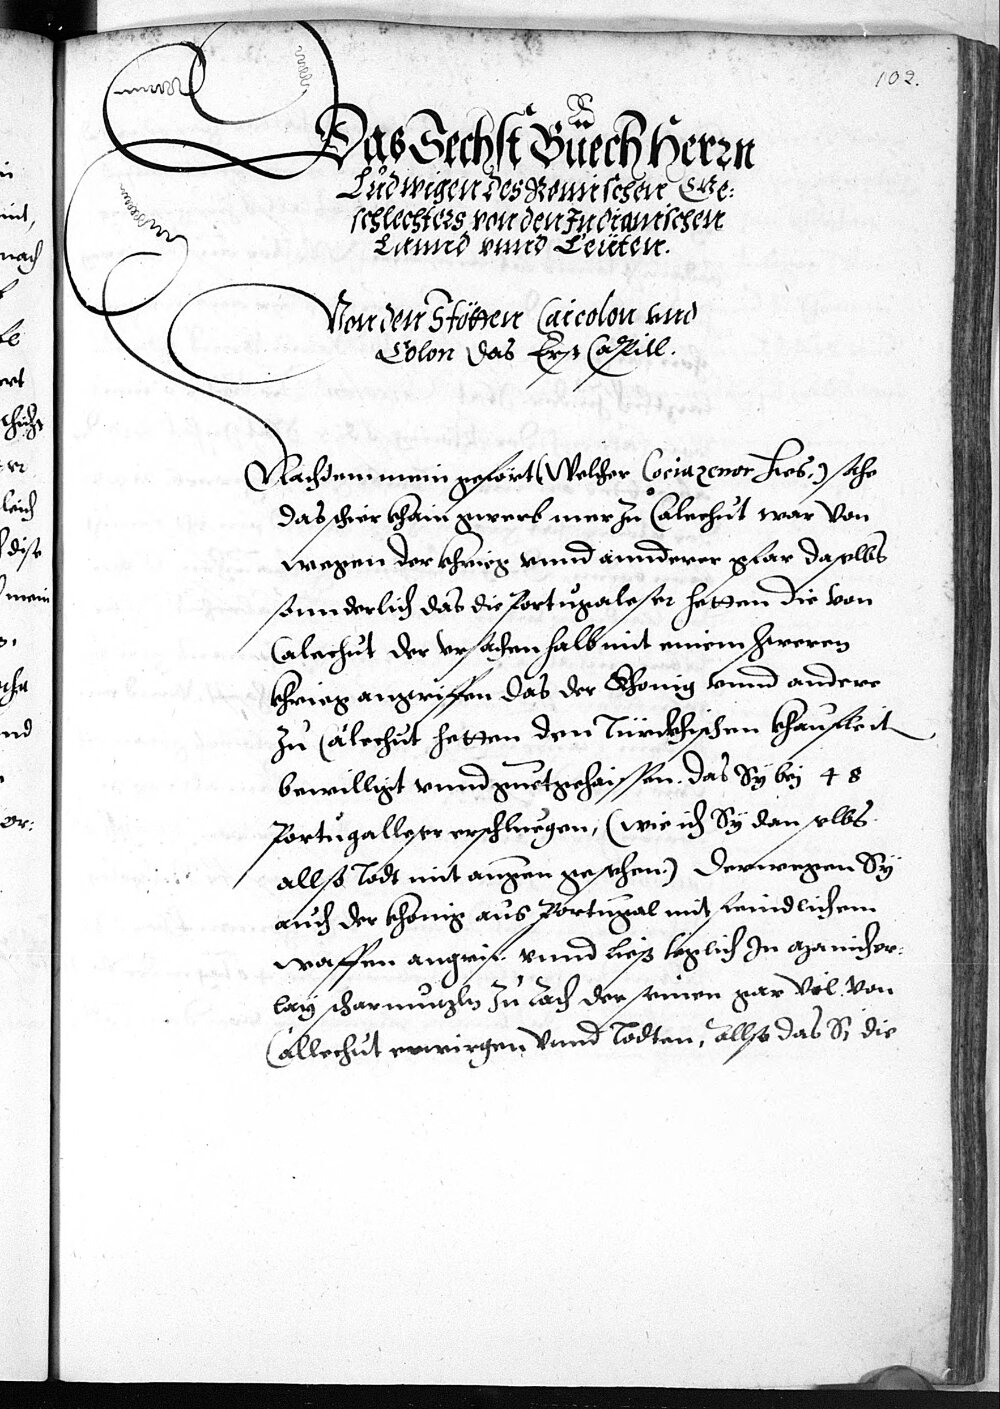 102.
Das Sechst Buech Herrn
Ludwigen des Römischen Ge:
schlechters von den Indianischen
Lannd vnnd Leüten.
Von den Stötten Caicolon vnd
Colon das Erst Capitl.
Nachdem mein gefört (Welcher Cociazenor hies.) sahe
das schier khain gwerb mer zu Calechut war von
wegen der khrieg vnnd annderer gfar daselbs
sonnderlich das die Portugaleser hetten die von
Calechut der vrsachen halb mit einem schweren
khrieg angriffen das der Khönig vnnd andere
zu Calechut hetten den Türckhischen khaufleit
bewilligt vnnd guetgehaissen. das Sy bej 48
Portugalleser erschluegen, (wie ich Sy dan selbs
allso Todt mit augen gesehen.) Derwegen Sy
auch der khönig aus Portugal mit feindlichem
waffen angrif. vnnd ließ teglich In manicher:
laÿ scharmuzln zu Lach der seinen gar vil von
Callechut erwirgen vnnd Todten, allso das Si die